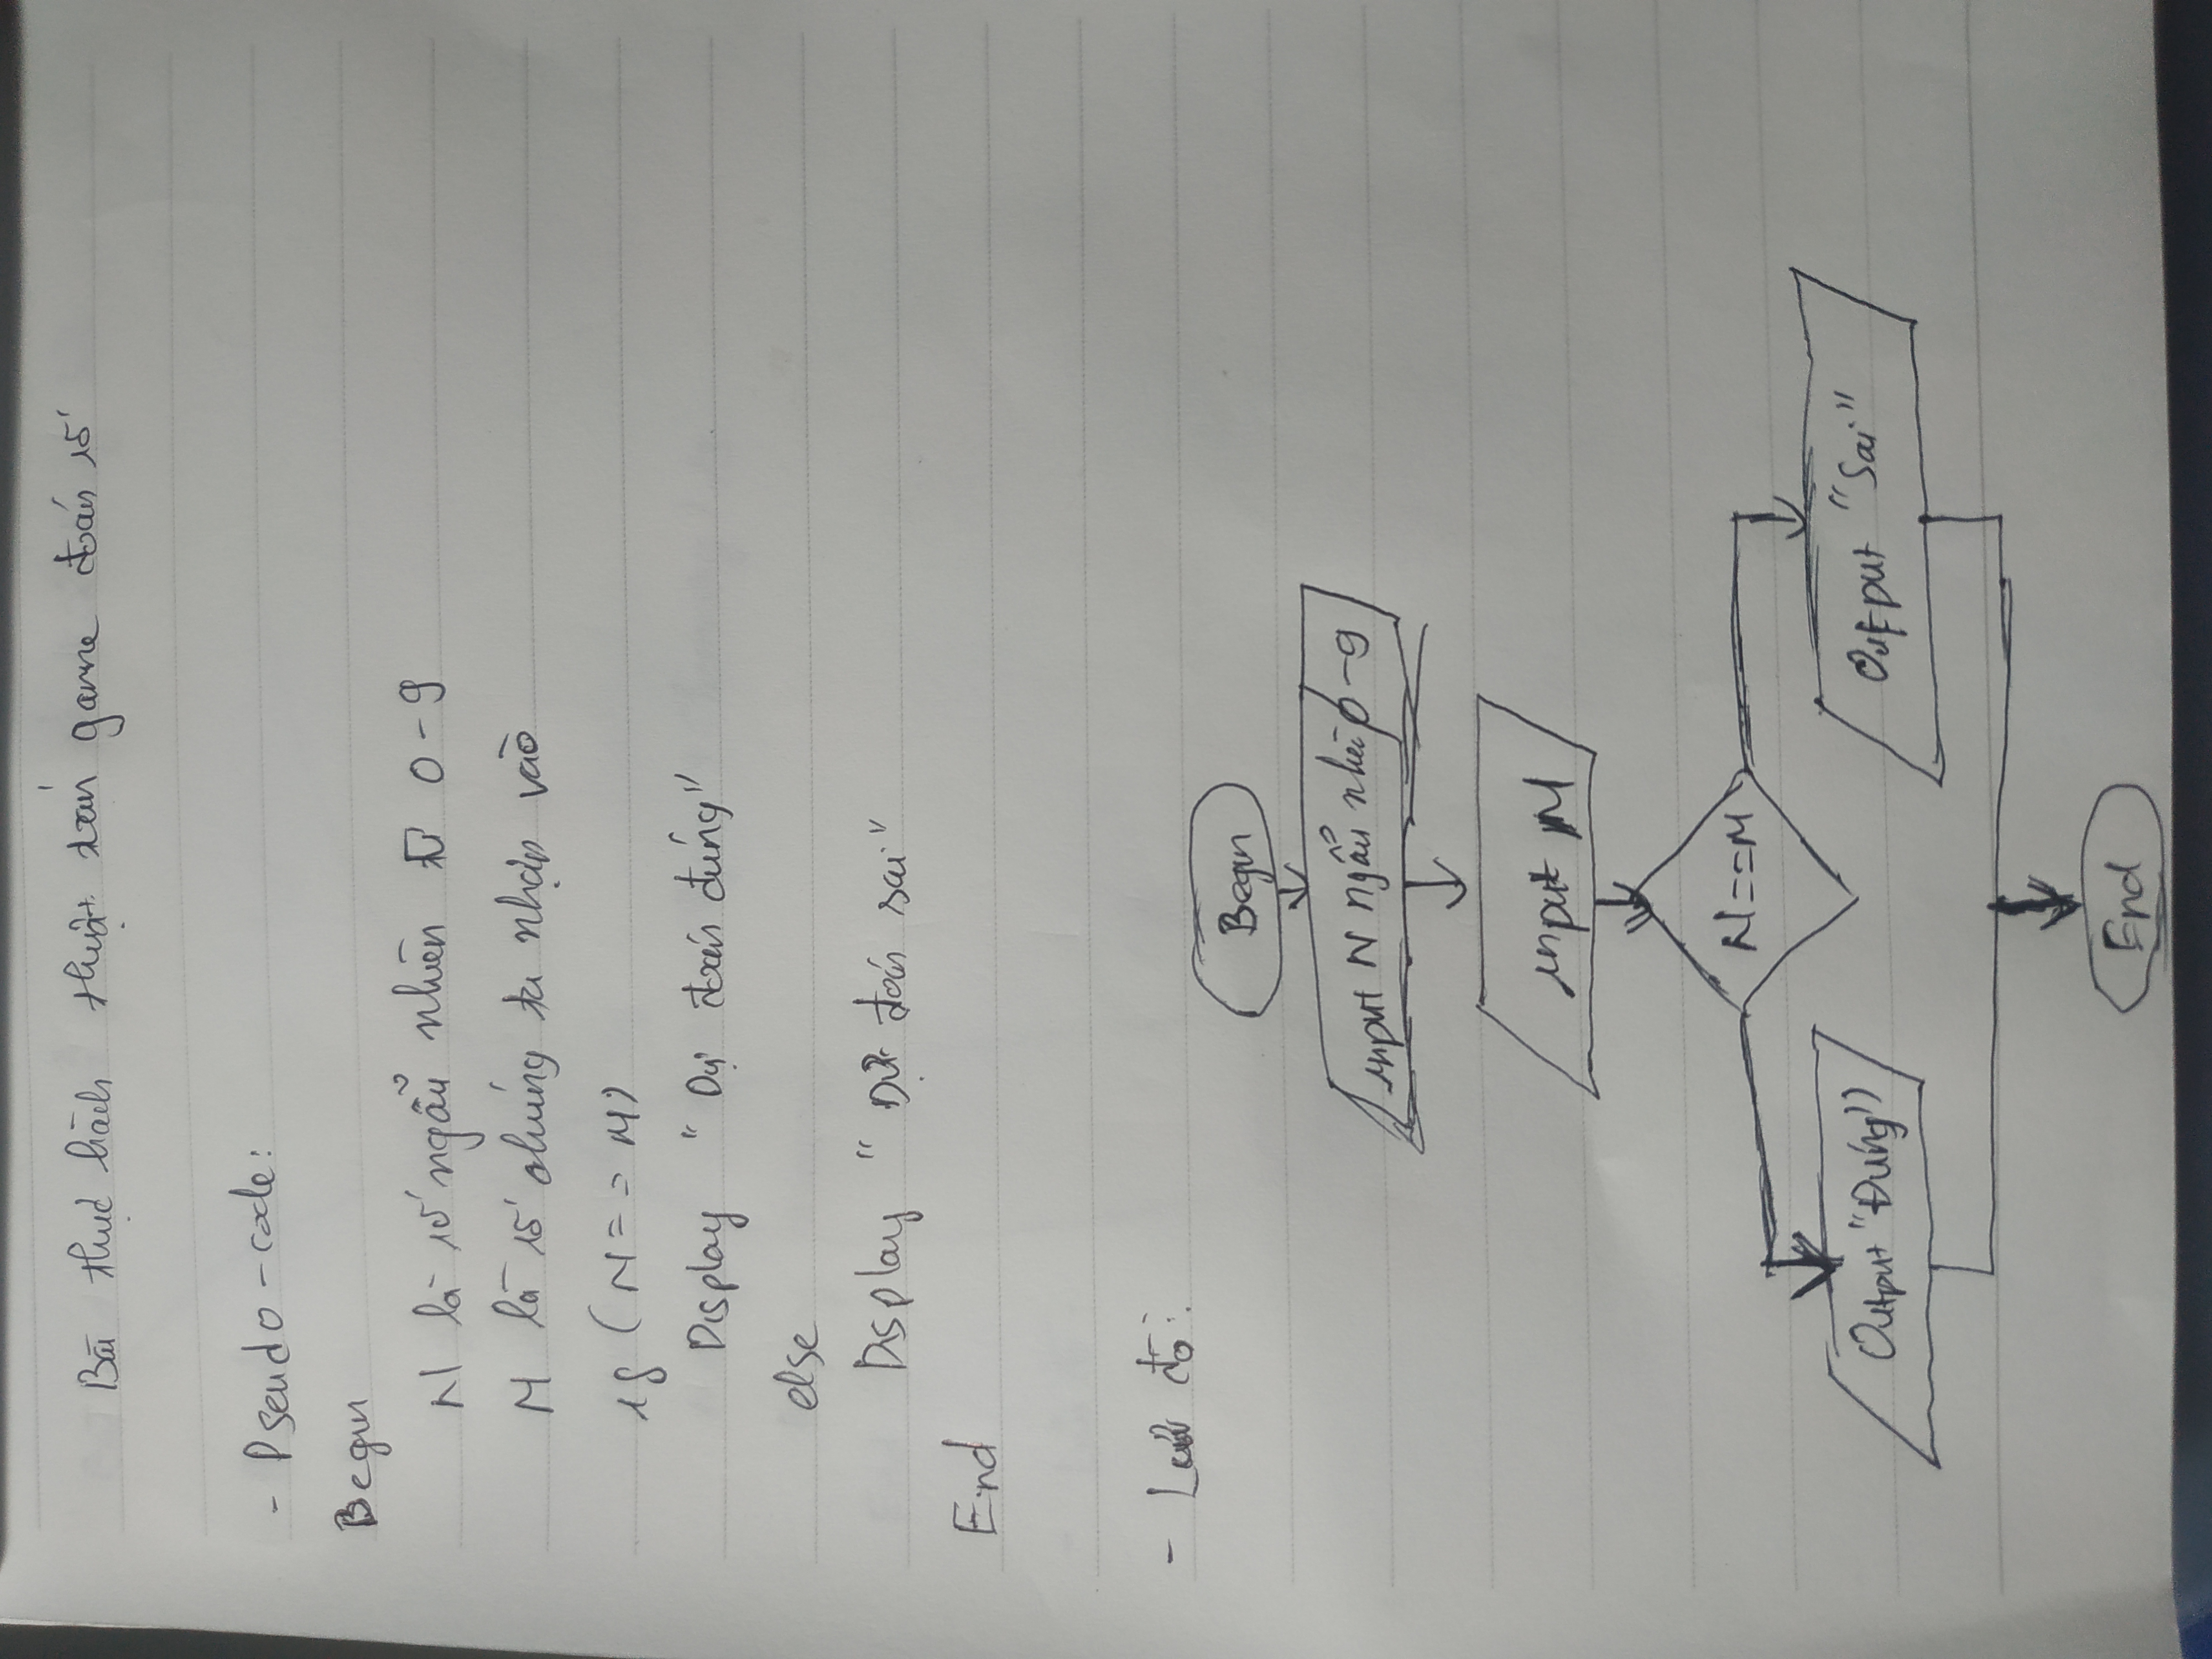 Bài thực hành thuật toán game đoán số
- Pseudo-code:
Begin
N là số ngẫu nhiên từ 0-9
M là số chúng ta nhập vào
if (N == M)
Display "Dự đoán đúng"
else
Display "Dự đoán sai"
End
- Lưu đồ:
Begin
input N ngẫu nhiên 0-9
input M
N==M
Output "Đúng"
Output "Sai"
End